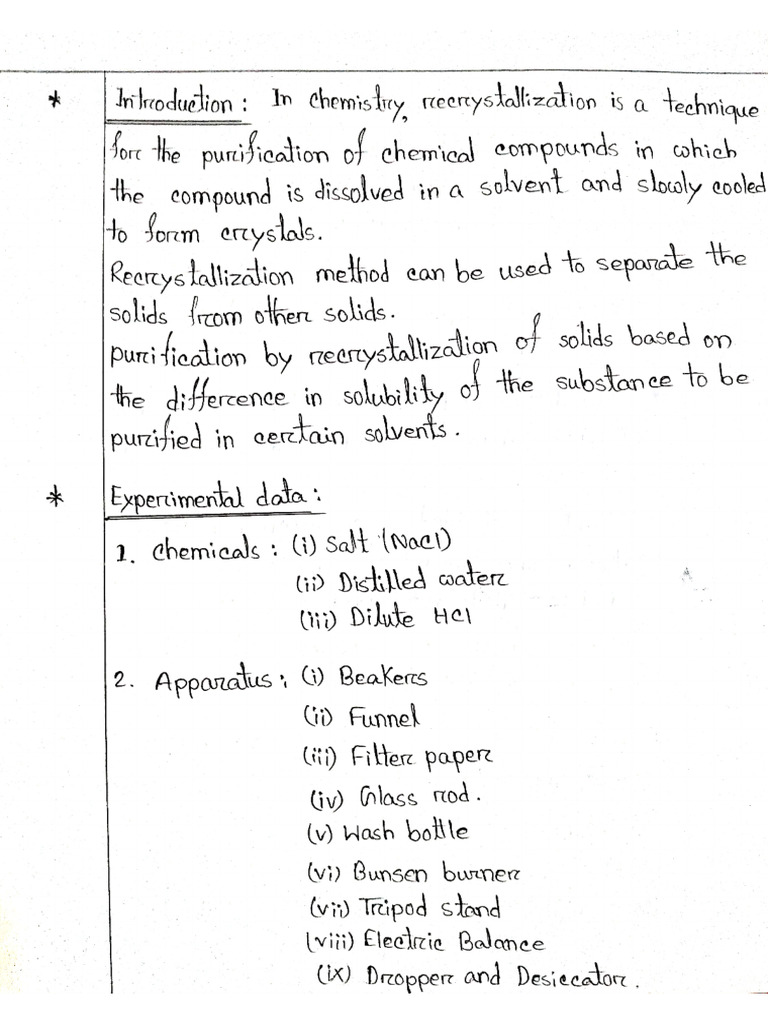 * Introduction: In chemistry, recrystallization is a technique
for the purification of chemical compounds in which
the compound is dissolved in a solvent and slowly cooled
to form crystals.
Recrystallization method can be used to separate the
solids from other solids.
purification by recrystallization of solids based on
the difference in solubility of the substance to be
purified in certain solvents.
* Experimental data:
1. Chemicals: (i) Salt (NaCl)
(ii) Distilled water
(iii) Dilute HCl
2. Apparatus: (i) Beakers
(ii) Funnel
(iii) Filter paper
(iv) Glass rod.
(v) Wash bottle
(vi) Bunsen burner
(vii) Tripod stand
(viii) Electric Balance
(ix) Dropper and Desiccator.